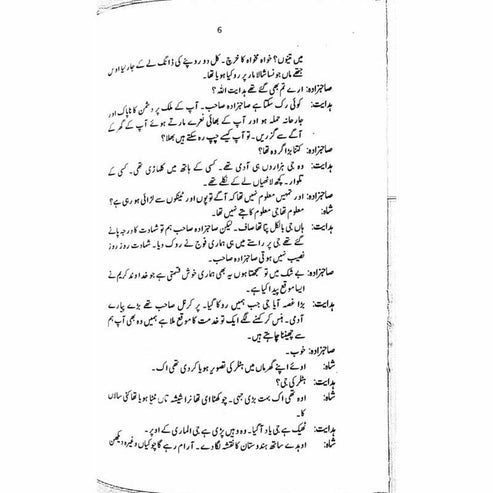 6
میں تینوں؟ خواہ مخواہ کا خرچ۔ کل دو روپئے کی ڈانگ لے کے جا رہیا اوس
جتھے ماں جونسا شالا مار پر رہ گیا ہویا تھا۔
صاحبزادہ: ارے تم بھی گئے تھے ہدایت اللہ؟
ہدایت: کوئی رک سکتا ہے صاحبزادہ صاحب۔ آپ کے ملک پر دشمن کا ناپاک اور
جارحانہ حملہ ہو اور آپ کے بھائی نعرے مارتے ہوئے آپ کے گھر کے
آگے سے گزریں۔ تو آپ کیسے چپ رہ سکتے ہیں بھلا؟
صاحبزادہ: کتنا بڑا گروہ تھا؟
ہدایت: وہ جی ہزاروں ہی آدمی تھے۔ کسی کے ہاتھ میں کلہاڑی تھی۔ کسی کے
تلوار۔ کچھ لاٹھیاں لے کے نکلے تھے۔
صاحبزادہ: اور تمہیں معلوم نہیں تھا کہ آگے توپوں اور ٹینکوں سے لڑائی ہو رہی ہے؟
شاہ: معلوم تھا جی معلوم کاہتے نہیں تھا۔
ہدایت: ہاں جی بالکل پتا تھا صاف۔ لیکن صاحبزادہ صاحب ہم تو شہادت کا درجہ پانے
گئے تھے جی پر راستے میں ہی ہماری فوج نے روک دیا۔ شہادت روز روز
نصیب نہیں ہوتی صاحبزادہ صاحب۔
صاحبزادہ: بے شک میں تو سمجھتا ہوں یہ بھی ہماری خوش قسمتی ہے جو خداوند کریم نے
ایسا موقع پیدا کیا ہے۔
ہدایت: بڑا غصہ آیا جی جب ہمیں روکا گیا۔ پر کرنل صاحب تھے بڑے پیارے
آدمی۔ ہنس کر کہنے لگے ایک تو خدمت کا موقع ملا ہے ہمیں وہ بھی آپ ہم
سے چھیننا چاہتے ہیں۔
صاحبزادہ: خوب۔
شاہ: اوئے اپنے گھر ماں میں ہٹلر کی تصویر ہویا کر دی تھی اک۔
ہدایت: ہٹلر کی جی؟
شاہ: اوہ تھی اک بہت بڑی جہی۔ چوکھٹا ای تھا نرا شیشہ تاں ٹٹا ہویا تھا کئی سالاں
کا۔
ہدایت: ٹھیک ہے جی یاد آ گیا۔ وہ وہیں پڑی ہے جی الماری کے اوپر۔
شاہ: اوہدے ساتھ ہندوستان کا نقشہ لگا دے۔ آرام رہے گا چوکیاں وغیرہ دیکھن